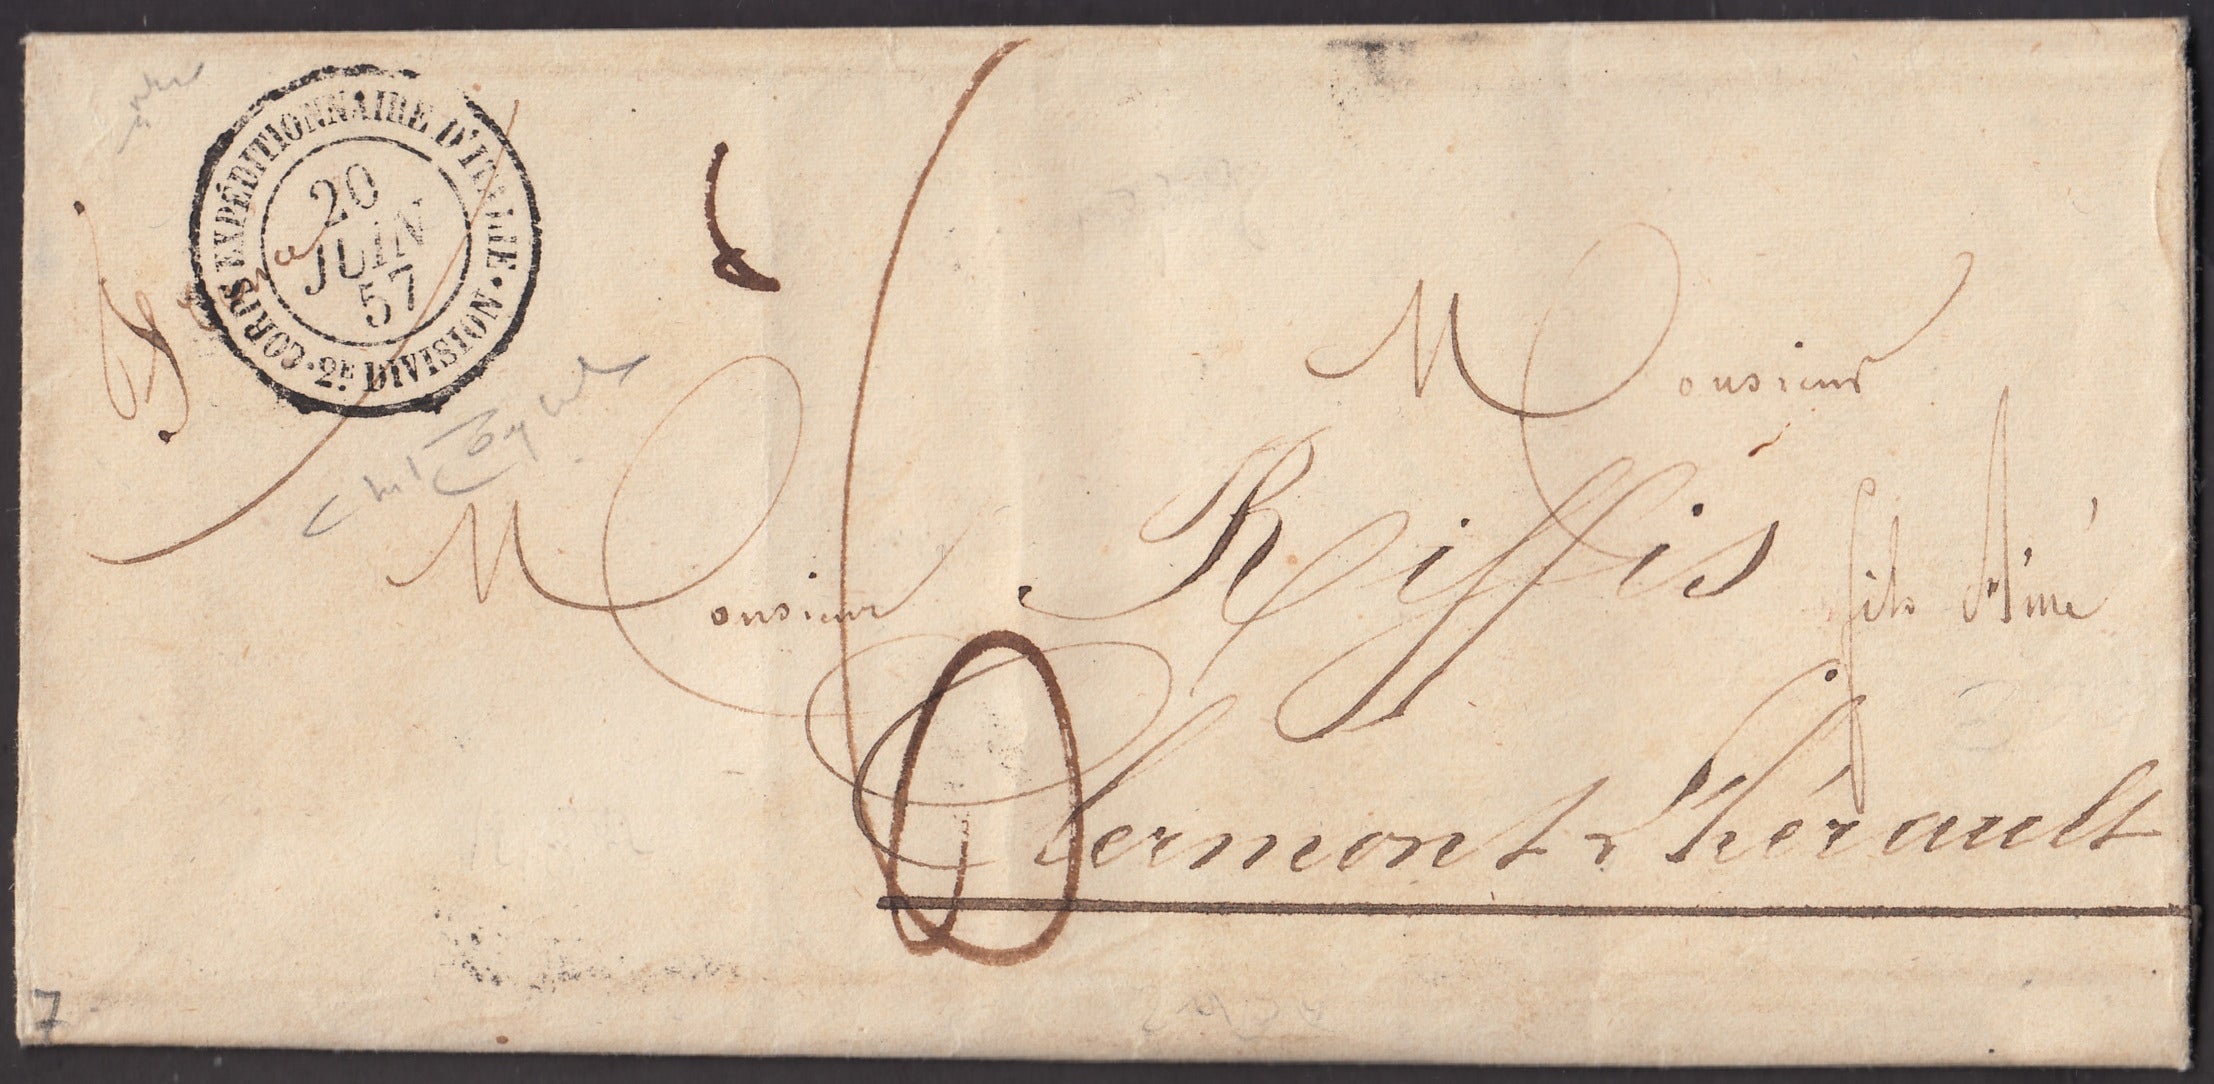 CORPS EXPÉDITIONNAIRE D'ITALIE · 2E DIVISION ·
20
JUIN
57
Monsieur
Monsieur
Riffis fils Aîné
Clermont L'hérault
7